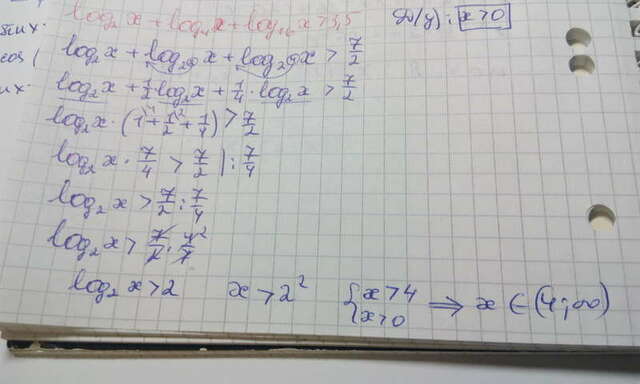 log₂x + log₄x + log₁₆x > 3,5 D(y): x>0
log₂x + log₂²x + log₂⁴x > 7/2
cos (
log₂x + 1/2 log₂x + 1/4 · log₂x > 7/2
их.
log₂x · (1 + 1/2 + 1/4) > 7/2
log₂x · 7/4 > 7/2 | : 7/4
log₂x > 7/2 : 7/4
log₂x > 7/2 · 4/7 2
log₂x > 2 x > 2² { x>4 x>0 ⇒ x ∈ (4; ∞)